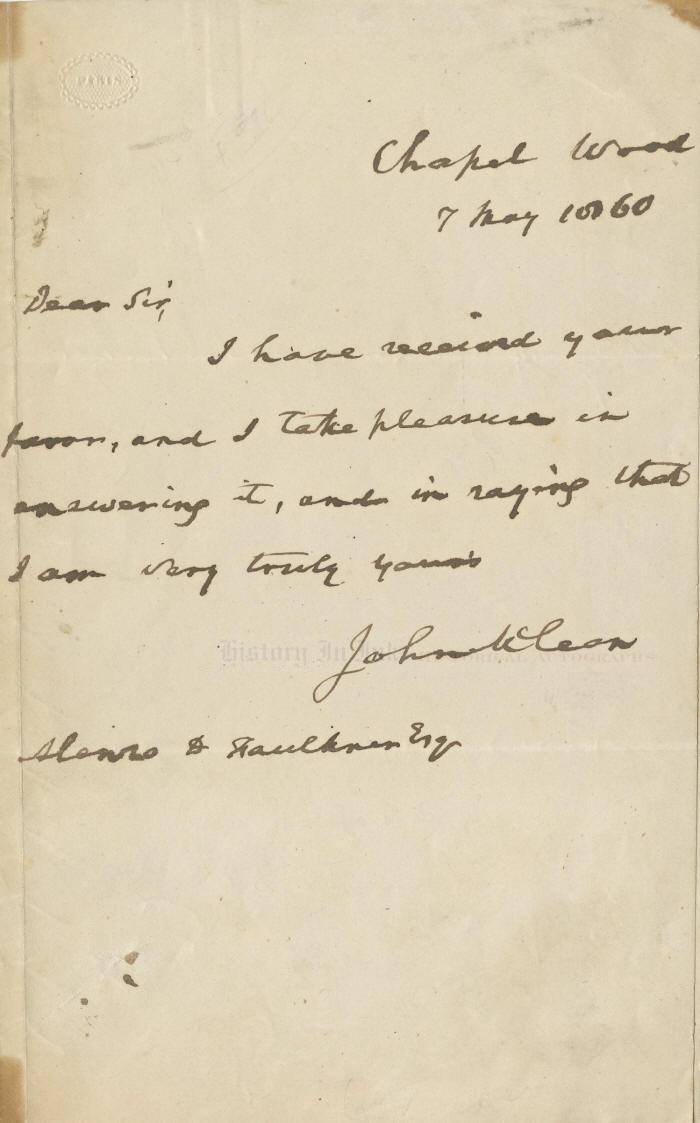 PARIS
Chapel Wood
7 May 1860
Dear Sir,
I have received your
favor, and I take pleasure in
answering it, and in saying that
I am very truly yours
John McLean
History In Ink
Alonzo D Faulkner Esq